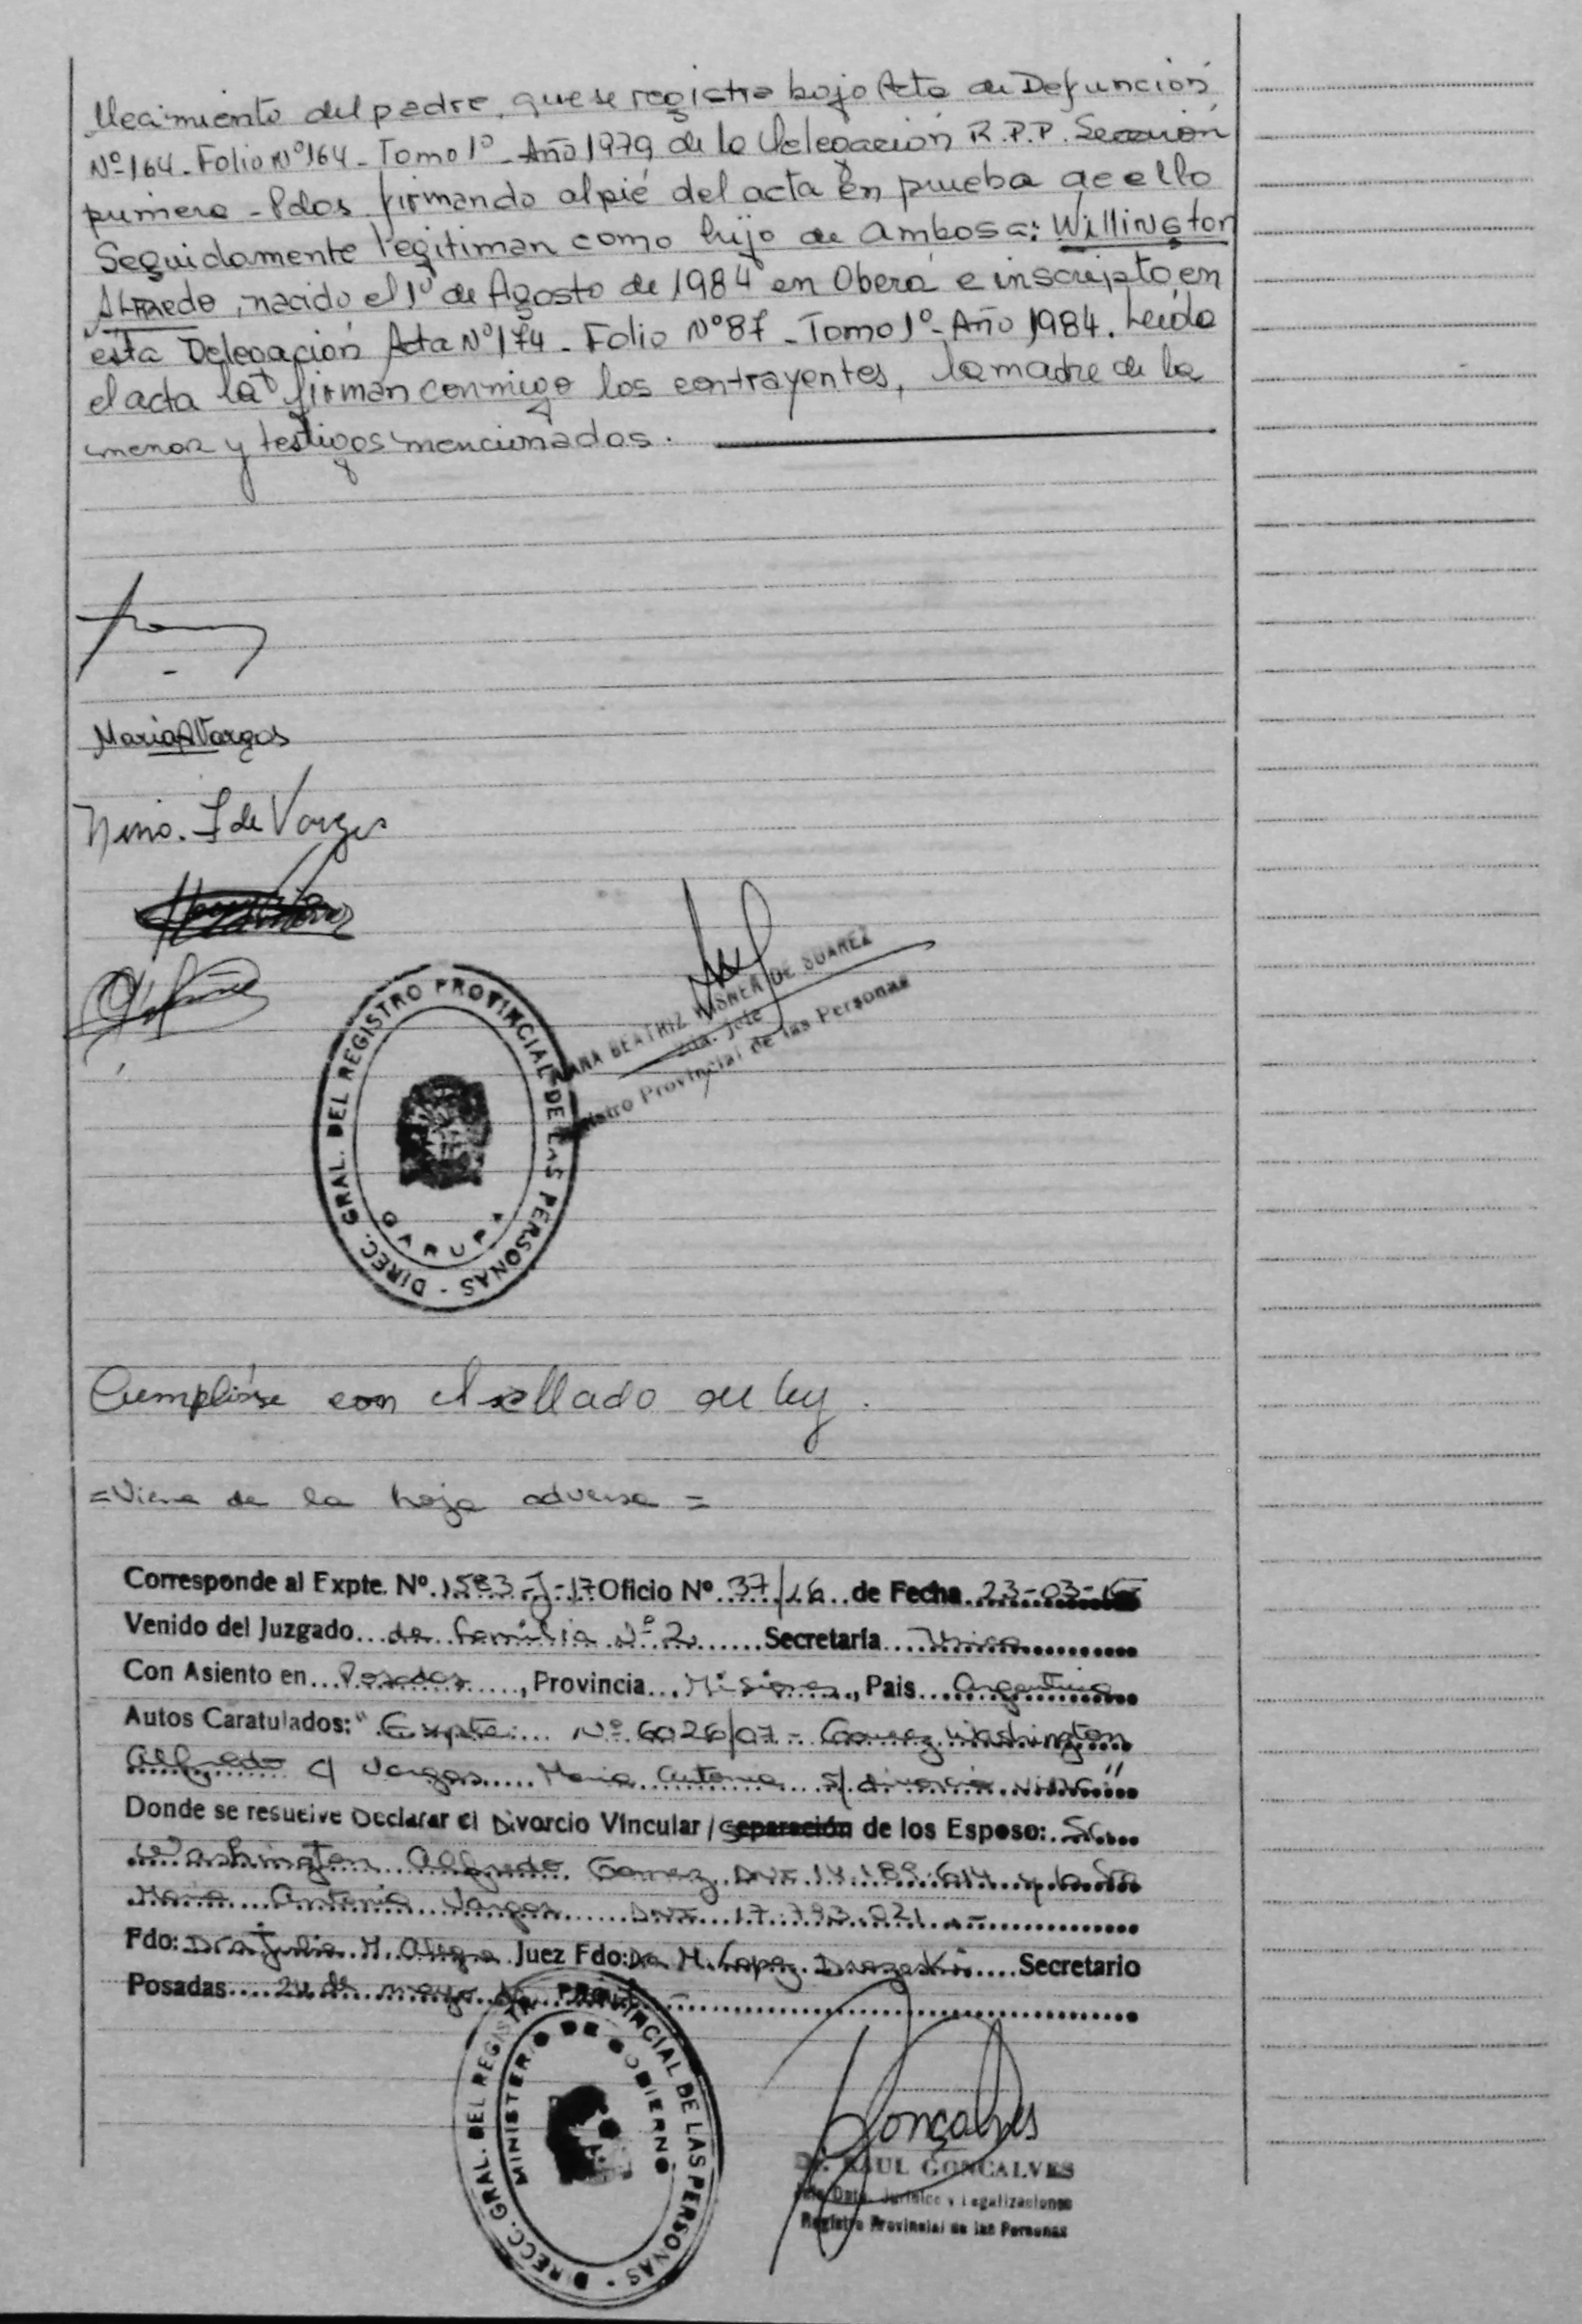 llecimiento del padre, que se registra bajo Acta de Defunción
Nº 164 - Folio Nº 164 - Tomo 1º - Año 1979 de la Delegación R.P.P. Sección
primera - Pdas. firmando al pié del acta en prueba de ello
Seguidamente legitiman como hijo de ambos a: Willington
Alfredo, nacido el 1º de Agosto de 1984 en Oberá e inscripto en
esta Delegación Acta Nº 174 - Folio Nº 87 - Tomo 1º - Año 1984. Leída
el acta la firman conmigo los contrayentes, la madre de la
menor y testigos mencionados.
Maria A Vargas
de Vargas
ANA BEATRIZ DE SUAREZ
2da. Jefe
Registro Provincial de las Personas
DIREC. GRAL. DEL REGISTRO PROVINCIAL DE LAS PERSONAS -
GARUPA
Cumplióse con el sellado de ley.
= Viene de la hoja adversa =
Corresponde al Expte. Nº. 1583-J-17 Oficio Nº 37/16 de Fecha 23-03-
Venido del Juzgado de familia Nº 2 Secretaría Unica
Con Asiento en Posadas, Provincia Misiones, Pais Argentina
Autos Caratulados: "Expte. Nº 6026/07 - Gomez Washington
Alfredo c/ Vargas Maria Antonia s/ divorcio
Donde se resuelve Declarar el Divorcio Vincular / Separación de los Esposo: Sr.
Washington Alfredo Gomez DNI 14.189.614 y la Sra
Maria Antonia Vargas DNI 17.793.021.-
Fdo: Dra Julia M. Juez Fdo: Dra M. Lopez Secretario
Posadas 24 de mayo
DIRECC. GRAL. DEL REGISTRO PROVINCIAL DE LAS PERSONAS -
MINISTERIO DE GOBIERNO
Goncalves
Dr. RAUL GONCALVES
Jefe Dpto. Jurídico y Legalizaciones
Registro Provincial de las Personas